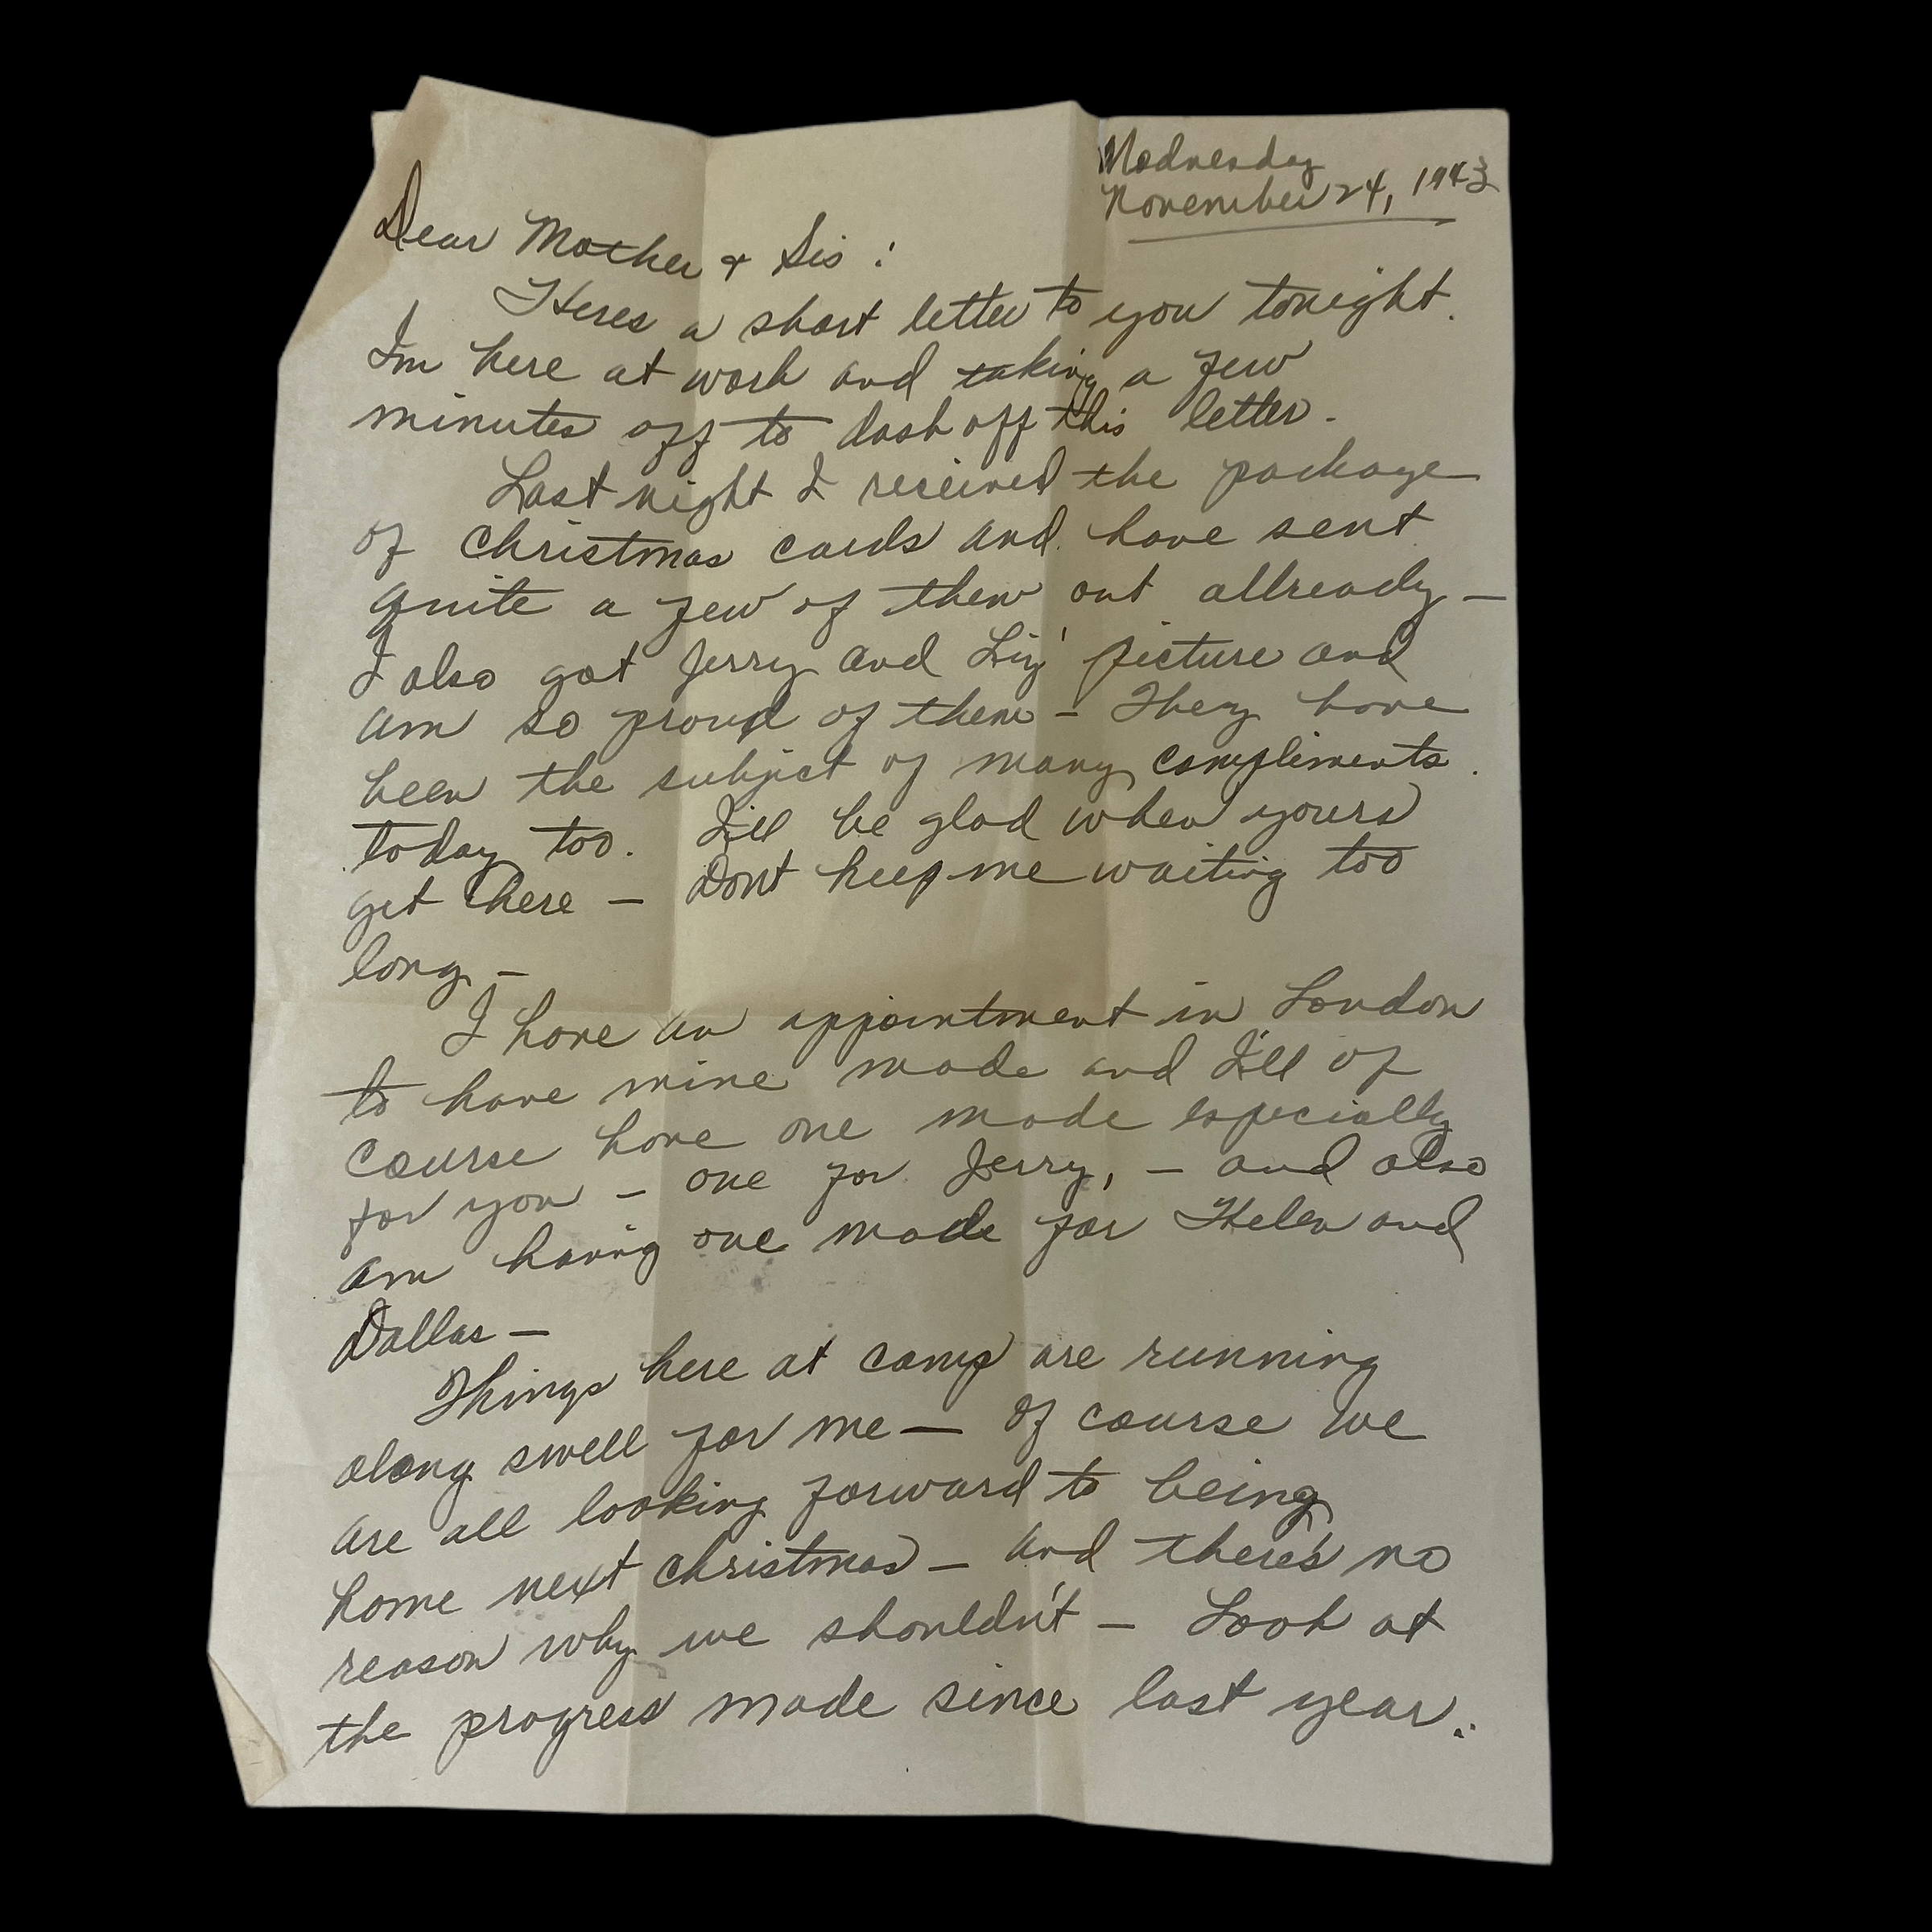 Wednesday
November 24, 1943
Dear Mother & Sis:
Heres a short letter to you tonight.
Im here at work and taking a few
minutes off to dash off this letter.
Last night I received the package
of Christmas cards and have sent
quite a few of them out allready —
I also got Jerry and Liz' picture and
am so proud of them — They have
been the subject of many compliments.
today too. I'll be glad when yours
get here — Dont keep me waiting too
long —
I have an appointment in London
to have mine made and I'll of
course have one made especially
for you — one for Jerry, — and also
am having one made for Helen and
Dallas —
Things here at camp are running
along swell for me — Of course we
are all looking forward to being
home next Christmas — and there's no
reason why we shouldn't — Look at
the progress made since last year..